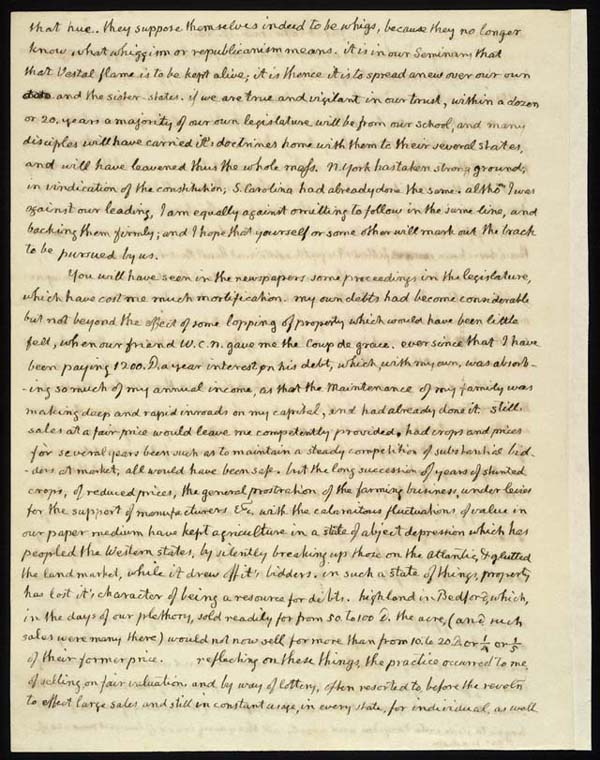 that hue. they suppose themselves indeed to be whigs, because they no longer
know what whiggism or republicanism means. it is in our Seminary that
that Vestal flame is to be kept alive; it is thence it is to spread anew over our own
and the sister-states. if we are true and vigilant in our trust, within a dozen
or 20. years a majority of our own legislature will be from our school, and many
disciples will have carried it's doctrines home with them to their several states,
and will have leavened thus the whole mass. N. York has taken strong ground,
in vindication of the constitution; S. Carolina had already done the same. altho' I was
against our leading, I am equally against omitting to follow in the same line, and
backing them firmly; and I hope that yourself or some other will mark out the track
to be pursued by us.
You will have seen in the newspapers some proceedings in the legislature,
which have cost me much mortification. my own debts had become considerable
but not beyond the effect of some lopping of property which would have been little
felt, when our friend W.C.N. gave me the Coup de grace. ever since that I have
been paying 1200. D. a year interest on his debt, which, with my own, was absorb-
-ing so much of my annual income, as that the Maintenance of my family was
making deep and rapid inroads on my capital, and had already done it. still
sales at a fair price would leave me competently provided. had crops and prices
for several years been such as to maintain a steady competition of substantial bid-
-ders at market, all would have been safe. but the long succession of years of stunted
crops, of reduced prices, the general prostration of the farming business, under levies
for the support of manufacturers &c. with the calamitous fluctuations of value in
our paper medium have kept agriculture in a state of abject depression which has
peopled the Western states, by silently breaking up those on the atlantic, & glutted
the land market, while it drew off it's bidders. in such a state of things, property
has lost it's character of being a resource for debts. highland in Bedford, which,
in the days of our plethory, sold readily for from 50 to 100 D. the acre, (and such
sales were many there) would not now sell for more than from 10. to 20. D. or 1/4 or 1/5
of their former price. reflecting on these things, the practice occurred to me,
of selling, on fair valuation and by way of lottery, often resorted to, before the revoln
to effect large sales and still in constant usage, in every state, for individual, as well